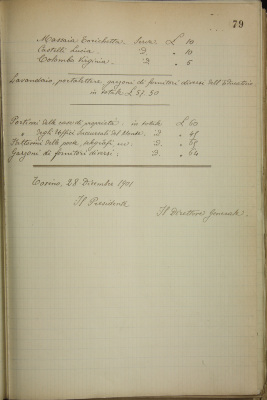 79
Massaia Enrichetta. Serva. L 10
Castelli Lucia. D. " 10
Colombo Virginia. D " 5
Lavandaio, portalettere, garzoni di fornitori diversi dell'Educatorio
in totale L 57.50
Portinai delle case di proprietà: in totale L 60
" degli Uffici D. " 45
Fattorini della posta, telegrafi, ecc: D. "
Garzoni di fornitori diversi. D. " 64
Torino, 28 Dicembre 1901
Il Presidente
Il Direttore Generale.